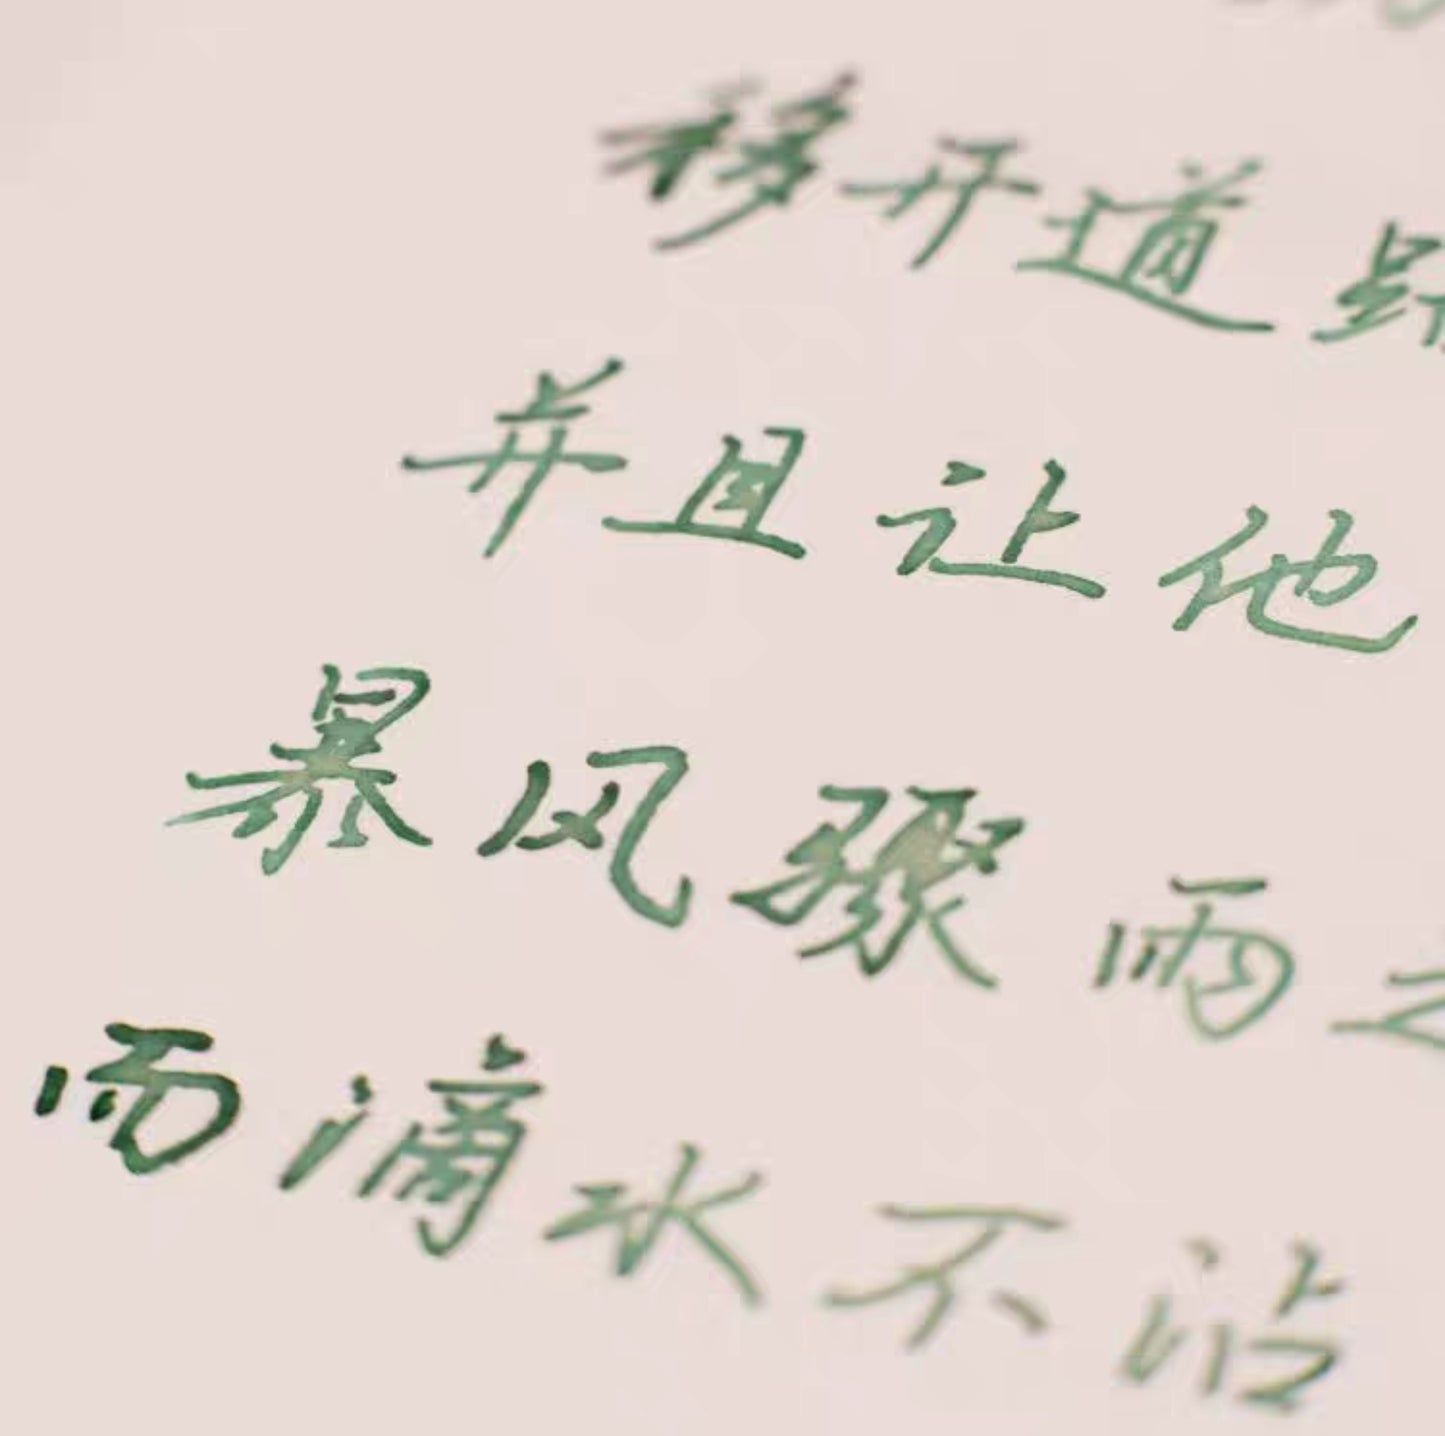 移开道路
并且让他
暴风骤雨之
而滴水不沾